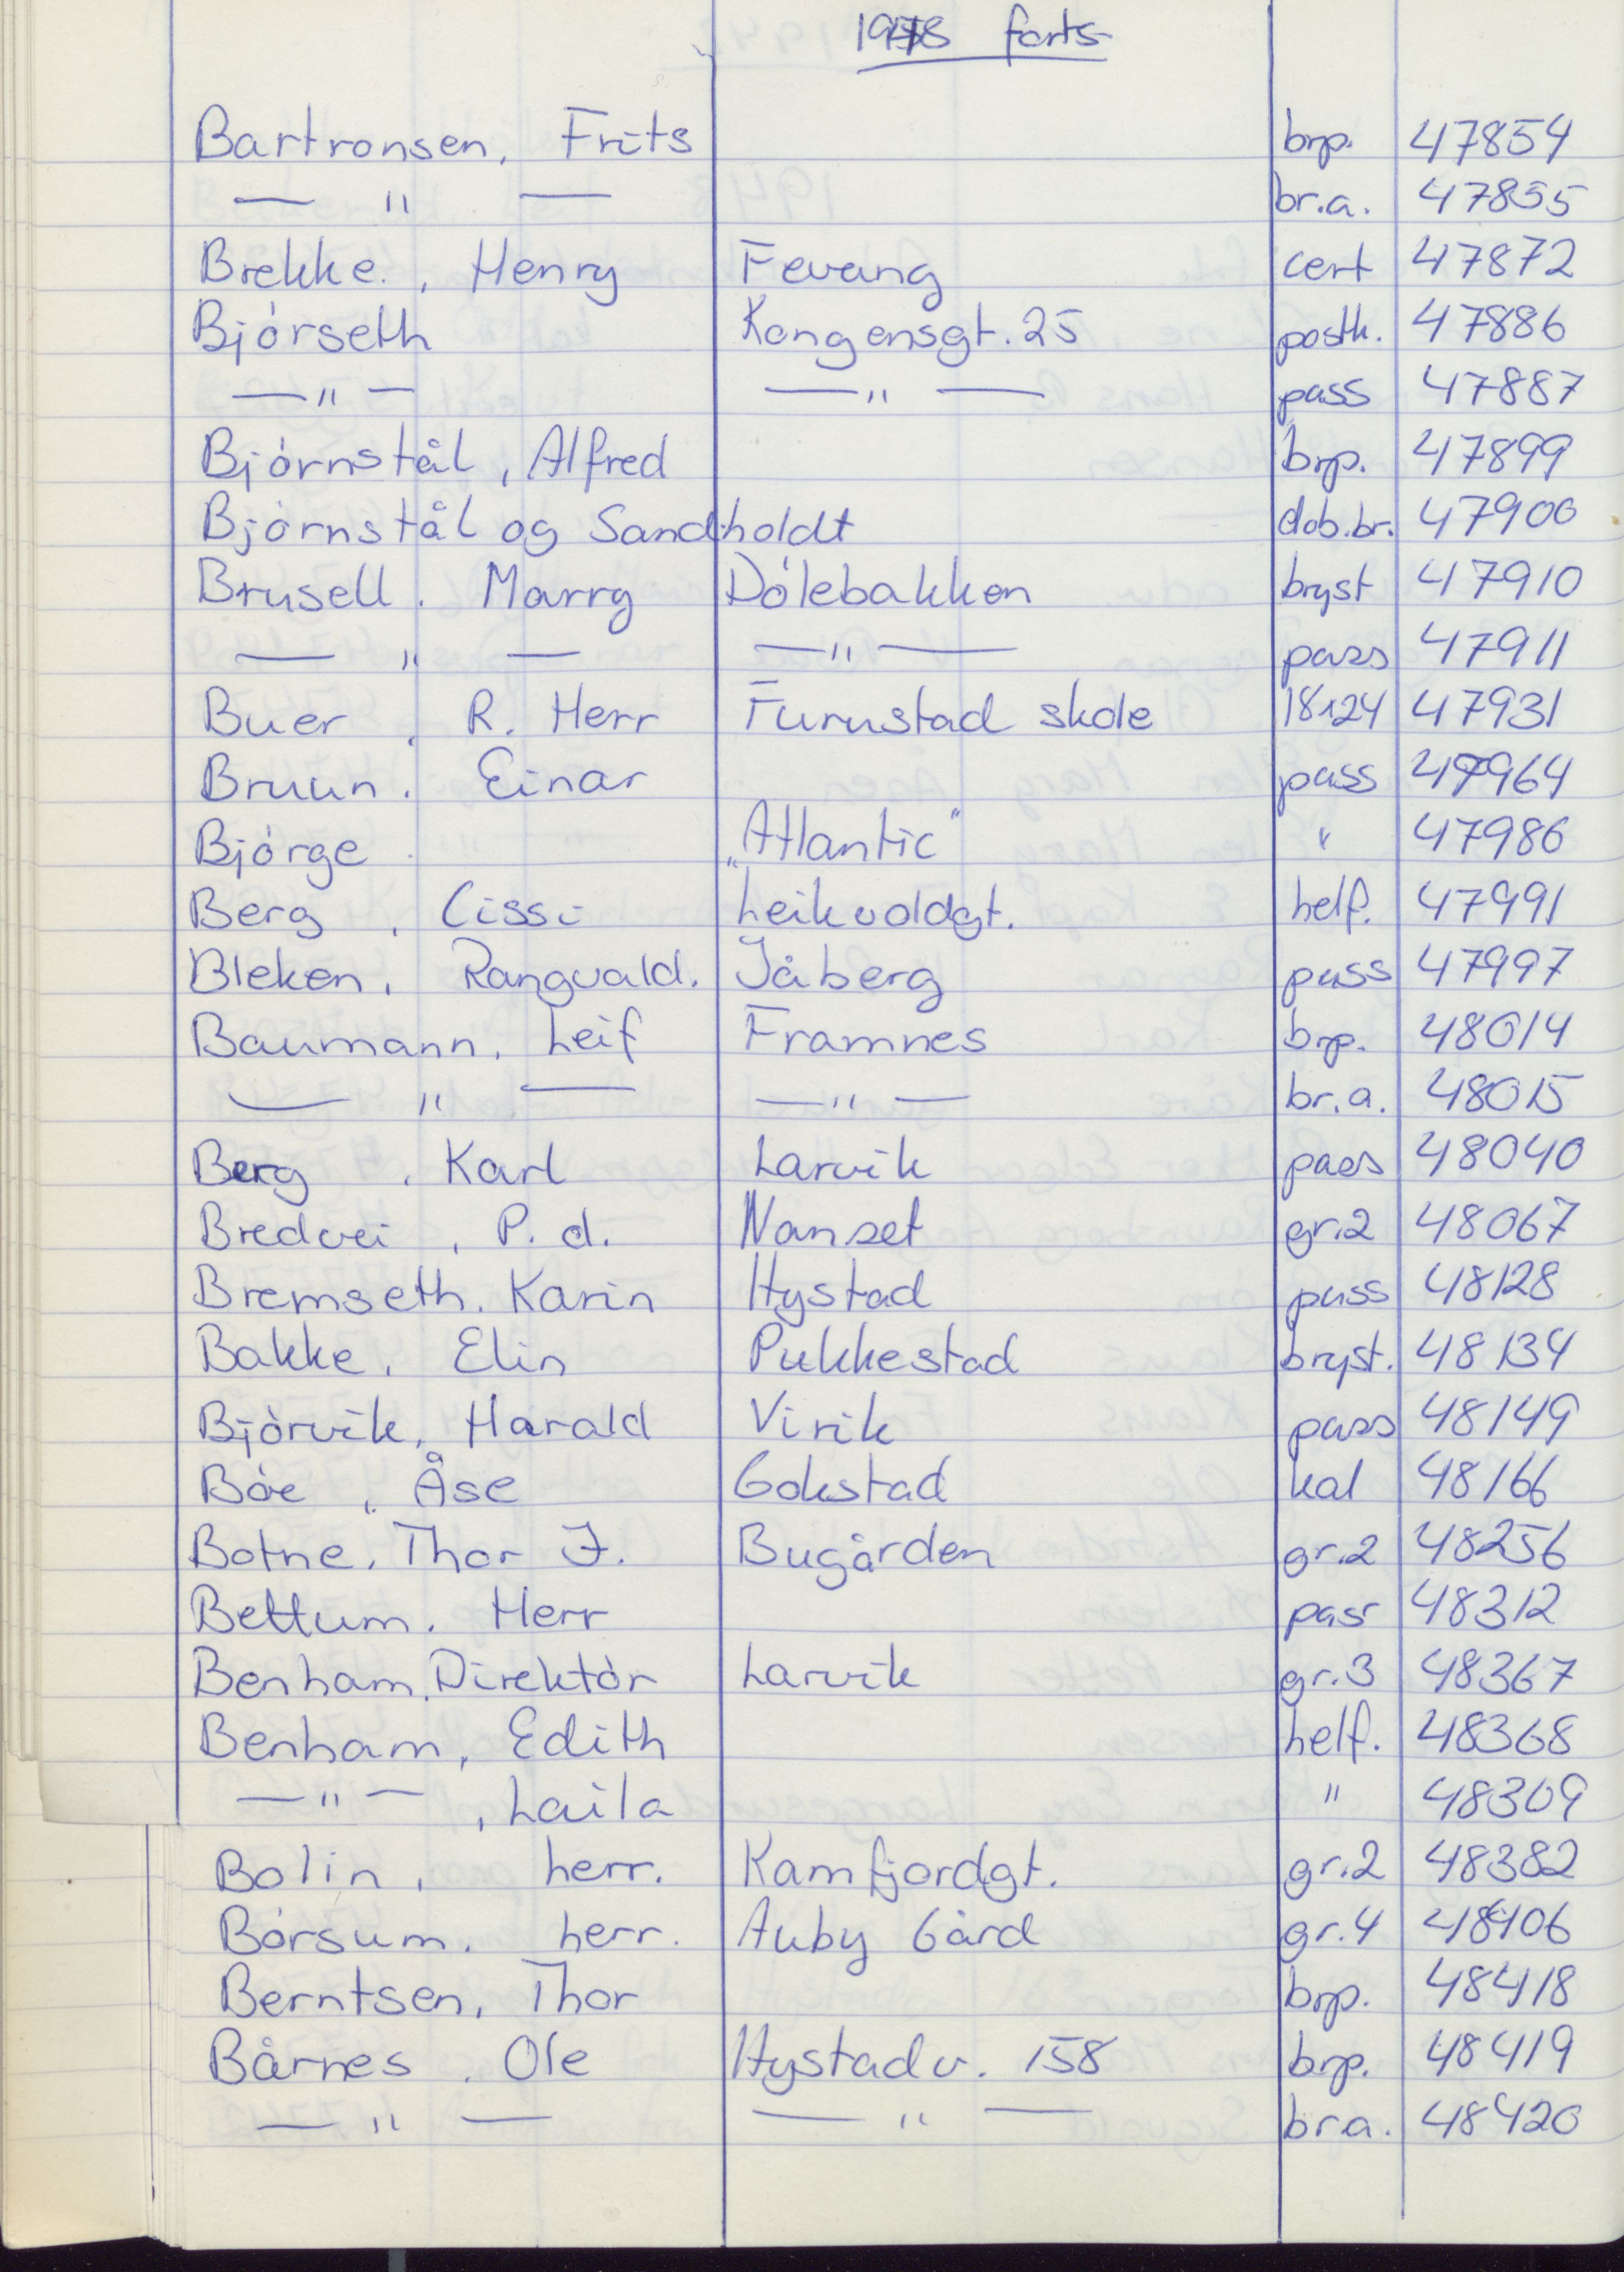 1948 forts
Bartronsen, Frits brp. 47854
— " — br.a. 47855
Brekke, Henry Fevang cert 47872
Bjórseth Kongensgt. 25 postk. 47886
— " — — " — pass 47887
Bjórnstål, Alfred brp. 47899
Bjórnstål og Sandholdt dob.br. 47900
Brusell, Marry Dólebakken bryst 47910
— " — — " — pass 47911
Buer, R. Herr Furustad skole 18x24 47931
Bruun, Einar pass 47964
Bjórge „Atlantic" " 47986
Berg, Cissi Leikvoldgt. helf. 47991
Bleken, Rangvald. Jåberg pass 47997
Baumann, Leif Framnes brp. 48014
— " — — " — br.a. 48015
Berg, Karl Larvik pass 48040
Bredvei, P. d. Nanset gr.2 48067
Bremseth, Karin Hystad pass 48128
Bakke, Elin Pukkestad bryst. 48134
Bjórvik, Harald Virik pass 48149
Bóe, Åse Gokstad kal 48166
Botne, Thor J. Bugården gr.2 48256
Bettum, Herr pass 48312
Benham, Direktór Larvik gr.3 48367
Benham, Edith helf. 48368
— " —, Laila " 48369
Bolin, herr. Kamfjordgt. gr.2 48382
Bórsum, herr. Auby Gård gr.4 48406
Berntsen, Thor brp. 48418
Bårnes, Ole Hystadv. 158 brp. 48419
— " — — " — br.a. 48420